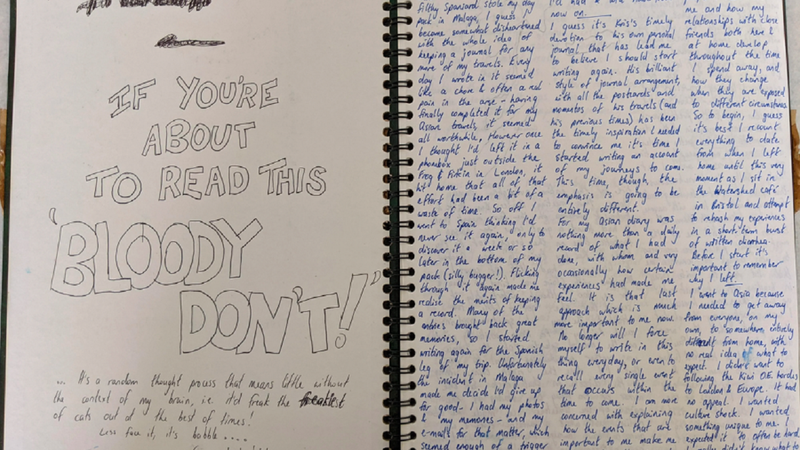 IF YOU'RE
ABOUT
TO READ THIS
'BLOODY
DON'T!'
... It's a random thought process that means little without
the context of my brain, ie. it'd freak the
of cats out at the best of times.
Less face it, it's babble ....
filthy Spaniard stole my day
pack in Malaga, I guess I
become somewhat disheartened
with the whole idea of
keeping a journal for any
more of my travels. Every
day I wrote in it seemed
like a chore & often a real
pain in the arse - having
finally completed it for my
Asian travels, it seemed
all worthwhile, However once
I thought I'd left it in a
phonebox just outside the
Frog & Firkin in London, it
hit home that all of that
effort had been a bit of a
waste of time. So off I
went to Spain thinking I'd
never see it again, only to
discover it a week or so
later in the bottom of my
pack (silly bugger!). Flicking
through it again made me
realise the merits of keeping
a record. Many of the
entries brought back great
memories, so I started
writing again for the Spanish
leg of my trip. Unfortunately
the incident in Malaga
made me decide I'd give up
for good - I had my photos
& my memories - and my
e-mails for that matter, which
seemed enough of a trigger
now on.
I guess it's Kris's timely
devotion to his own personal
journal, that has lead me
to believe I should start
writing again. His brilliant
style of journal arrangement,
with all the postcards and
mementos of his travels (and
his previous times) has been
the timely inspiration I needed
to convince me it's time I
started writing an account
of my journeys to come.
This time, though the
emphasis is going to be
entirely different.
For my Asian diary was
nothing more than a daily
record of what I had
done, with whom and very
occasionally how certain
experiences had made me
feel. It is that last
approach which is much
more important to me now.
No longer will I force
myself to write in this
thing everyday, or even to
recall every single event
that occurs within the
time to come. I am more
concerned with explaining
how the events that are
important to me make me
me and how my
relationships with close
friends both here &
at home develop
throughout the time
I spend away, and
how they change
when they are exposed
to different circumstances.
So to begin, I guess
it's best I recount
everything to date
from when I left
home until this very
moment as I sit in
the Watershed café
in Bristol and attempt
to rehash my experiences
in a short-term burst
of written diarrhea.
Before I start it's
important to remember
why I left.
I went to Asia because
I needed to get away
from everyone, on my
own, to somewhere entirely
different from home, with
no real idea of what to
expect. I didn't want to
following the Kiwi OE hordes
to London & Europe. It had
no appeal. I wanted
culture shock. I wanted
something unique to me. I
expected it to often be hard.